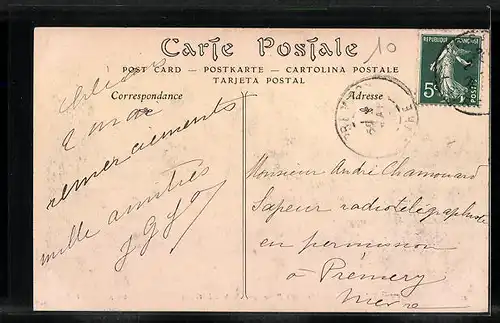 Carte Postale
POST CARD — POSTKARTE — CARTOLINA POSTALE
TARJETA POSTAL
Correspondance
Adresse
10
REPUBLIQUE FRANÇAISE
5
remerciements
mille amitiés
Monsieur André Chamouard
Sapeur radiotélégraphiste
en permission
à Prémery
Nièvre